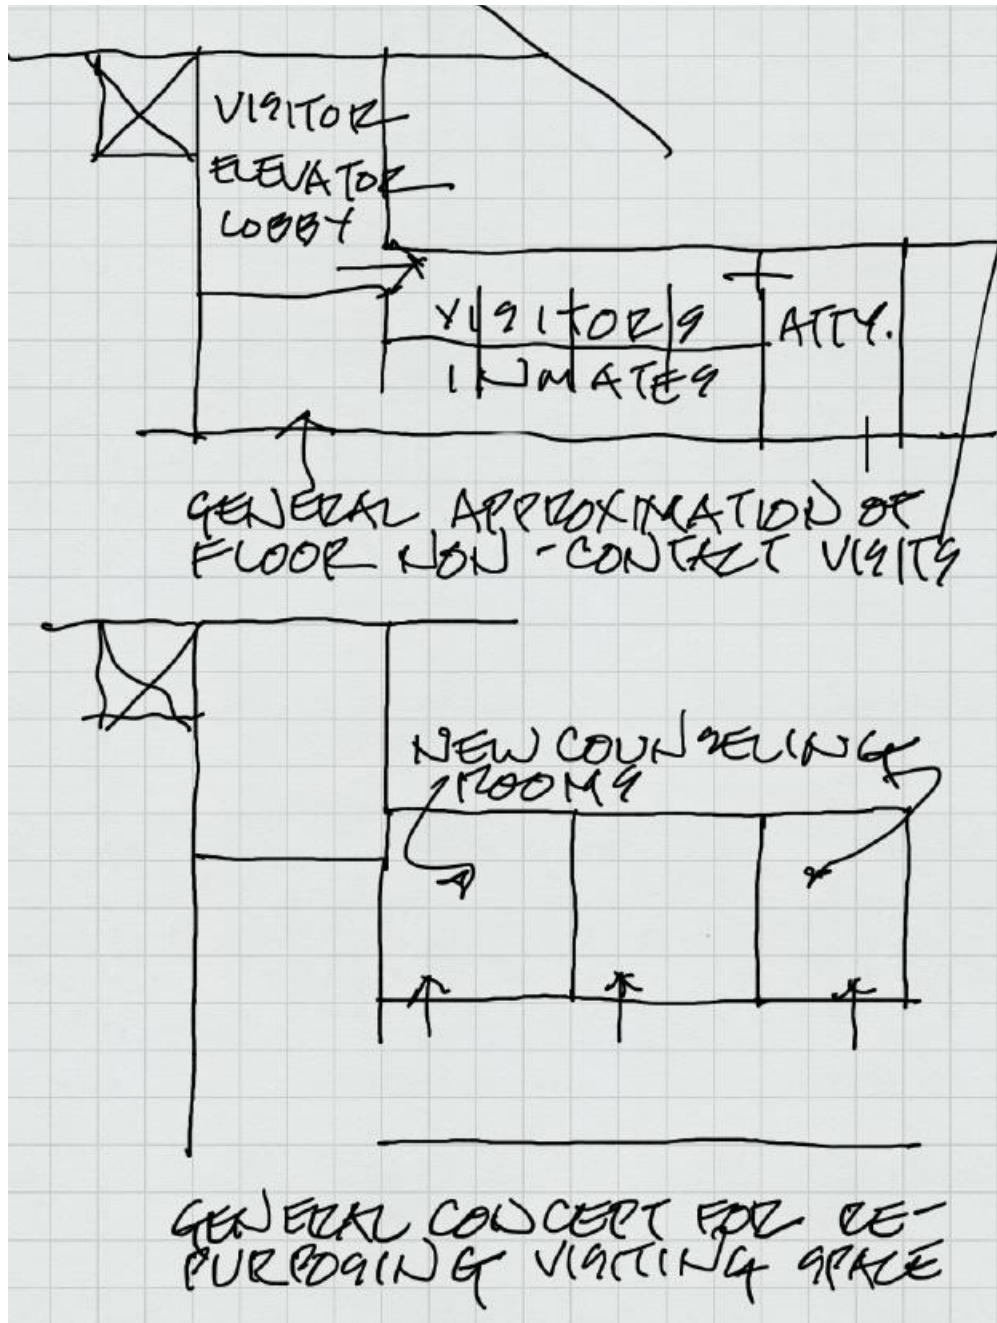 VISITOR
ELEVATOR
LOBBY
VISITORS
ATTY.
INMATES
GENERAL APPROXIMATION OF
FLOOR NON-CONTACT VISITS
NEW COUNSELING
ROOMS
GENERAL CONCEPT FOR RE-
PURPOSING VISITING SPACE